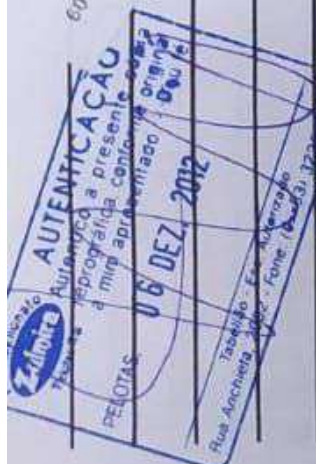 AUTENTICAÇÃO
Autentico a presente cópia
reprográfica conforme original
a mim apresentado. Dou fé.
PELOTAS, 06 DEZ. 2012
Tabelião - Esc. Autorizado
Rua Anchieta, - Fone: